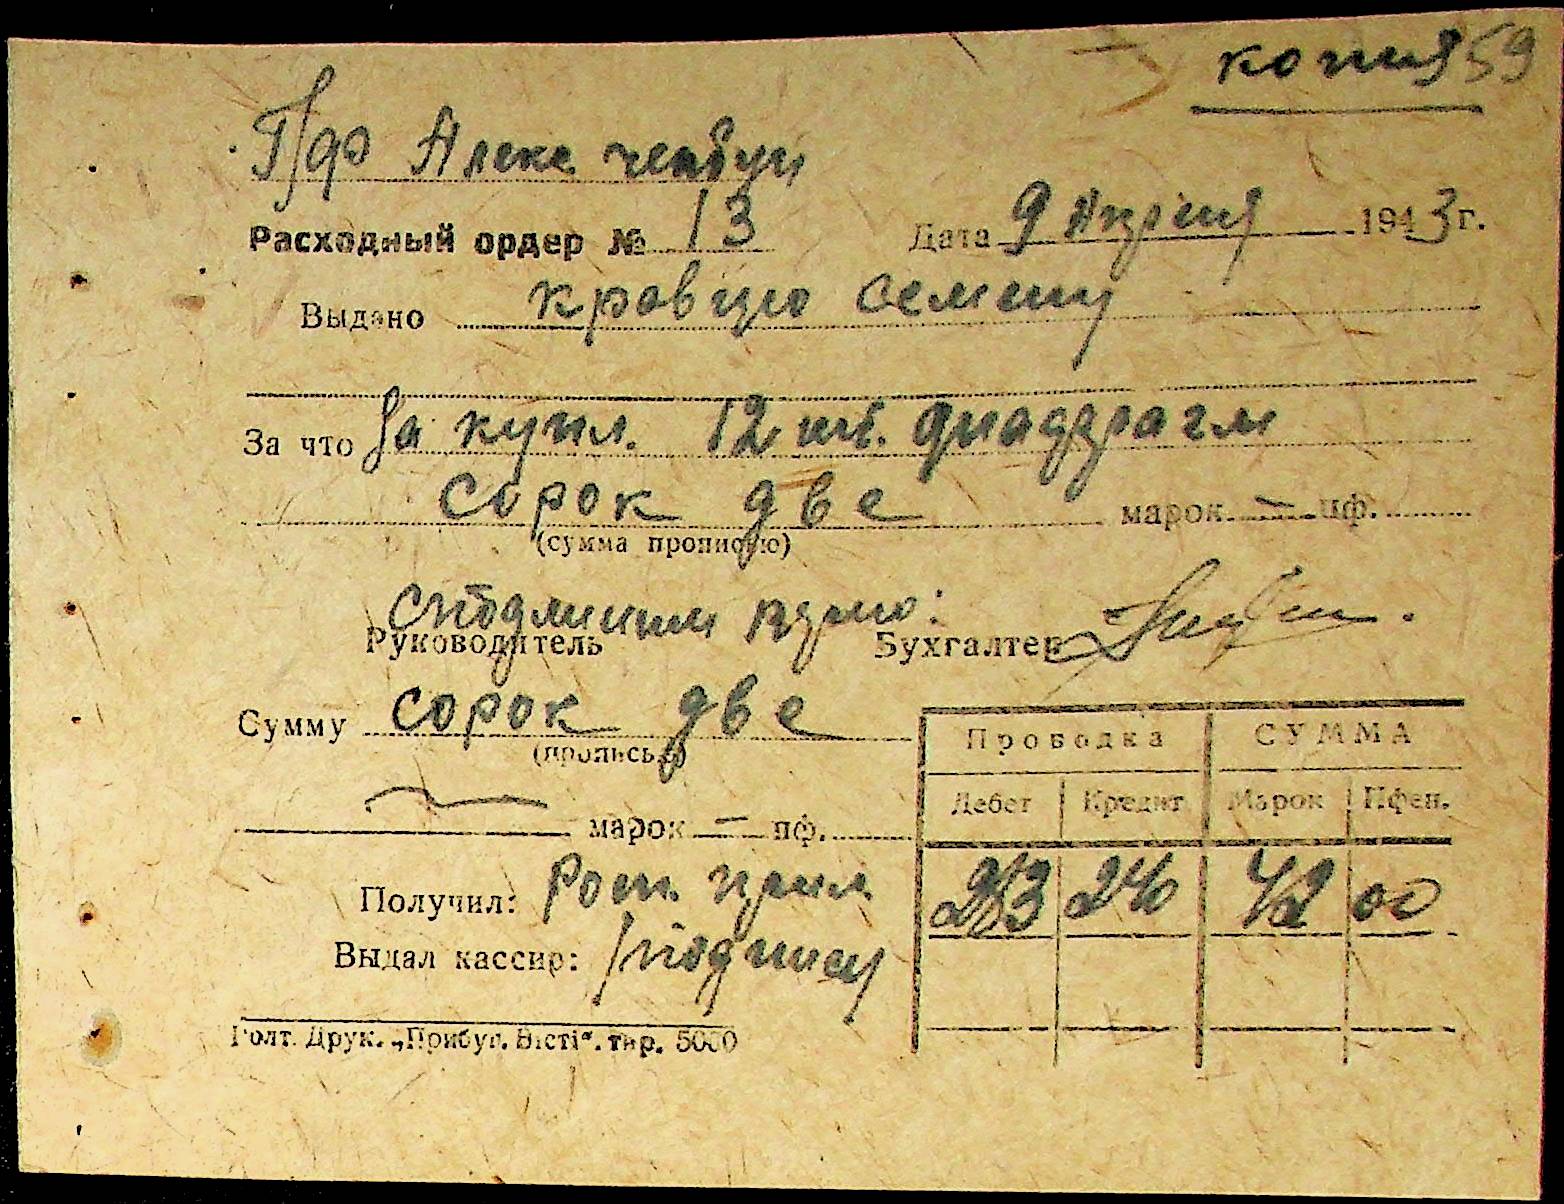 копия 59
Расходный ордер № 13 Дата 9 Апреля 1943 г.
Выдано Кравцю Семену
За что За купл. 12 шт. диафрагм
сорок две марок — пф.
(сумма прописью)
Руководитель Бухгалтер
Сумму сорок две
(прописью)
Проводка СУММА
Дебет Кредит Марок Пфен.
марок — пф.
42 00
Получил:
Выдал кассир: /подпись/
Голт. Друк. „Прибуг. Вісті“. тир. 5000